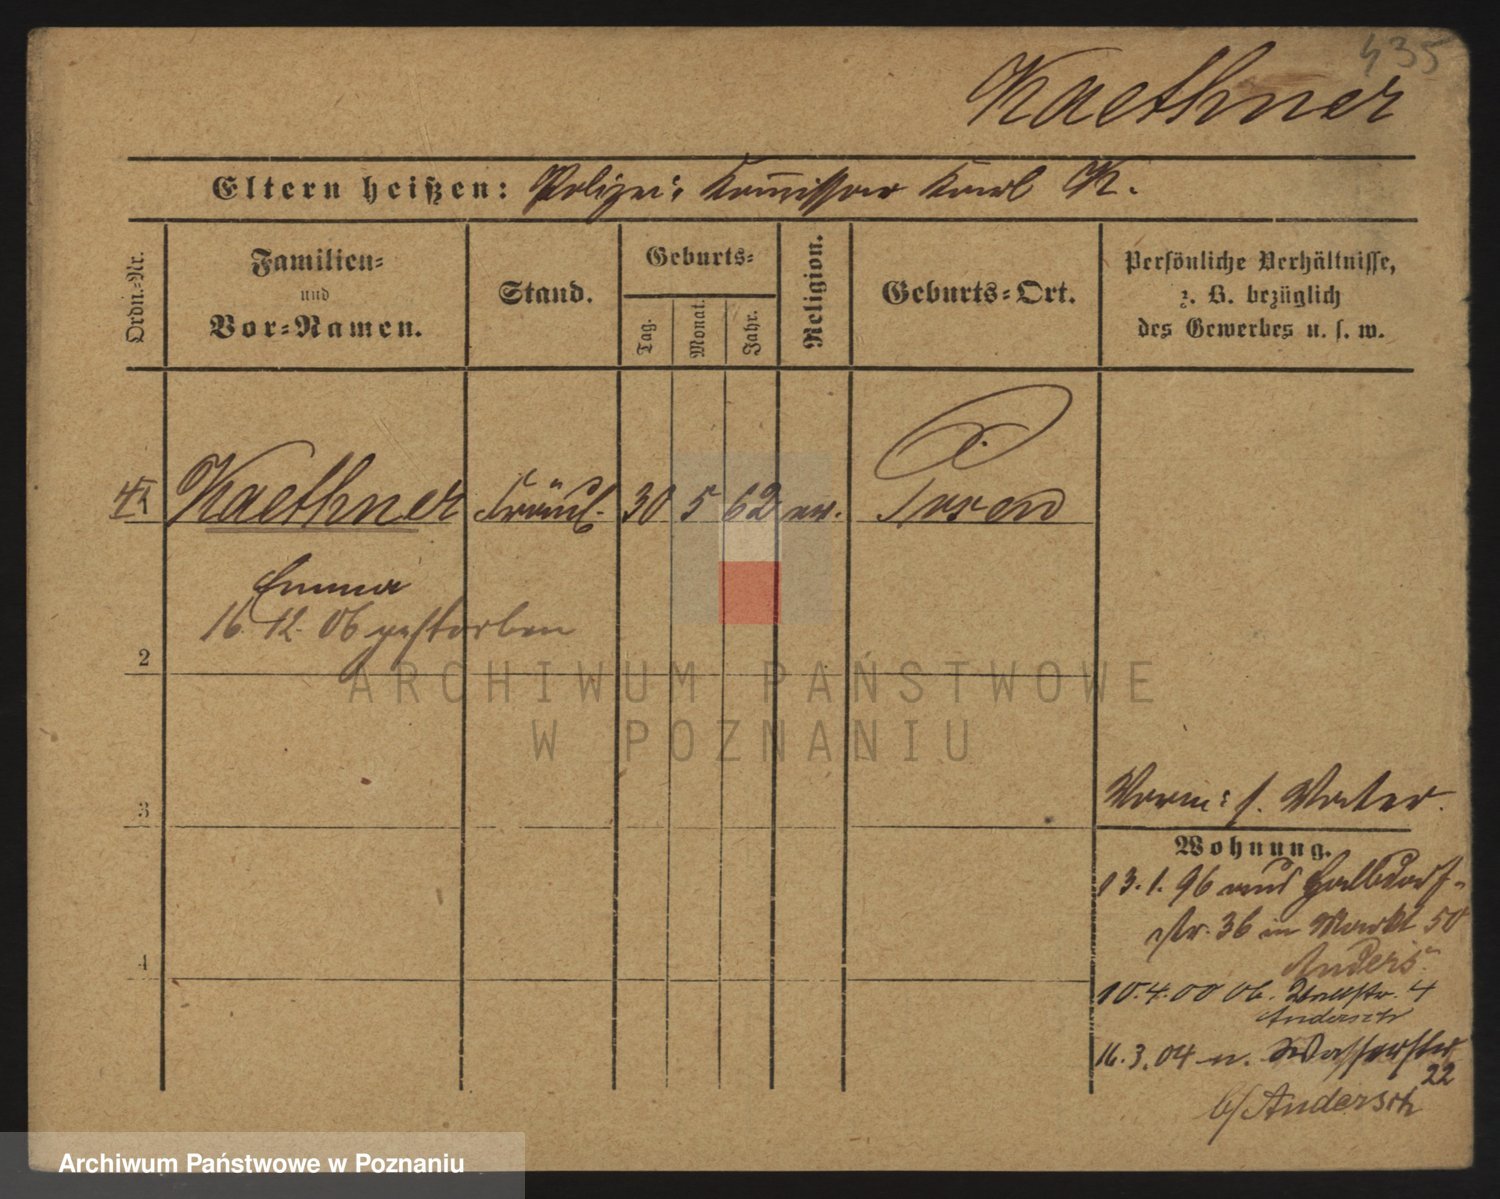 435
Kaethner
Eltern heißen: Polizei: Kommissar Karl K.
Ordn.-Nr.
Familien-
und
Vor-Namen.
Stand.
Geburts-
Tag.
Monat.
Jahr.
Religion.
Geburts-Ort.
Persönliche Verhältnisse,
z. B. bezüglich
des Gewerbes u. s. w.
1 Kaethner Fräul. 30 5 62 ev. Posen
Emma
16. 12. 06 gestorben
2
3
4
Vorm: s. Vater.
Wohnung.
13.1.96 aus Halbdorf-
str. 36 n Markt 50
Anders
10.4.00 Ob. Wallstr. 4
Andersch
16.3.04 n. Wasserstr
22
b/Andersch
ARCHIWUM PAŃSTWOWE
W POZNANIU
Archiwum Państwowe w Poznaniu